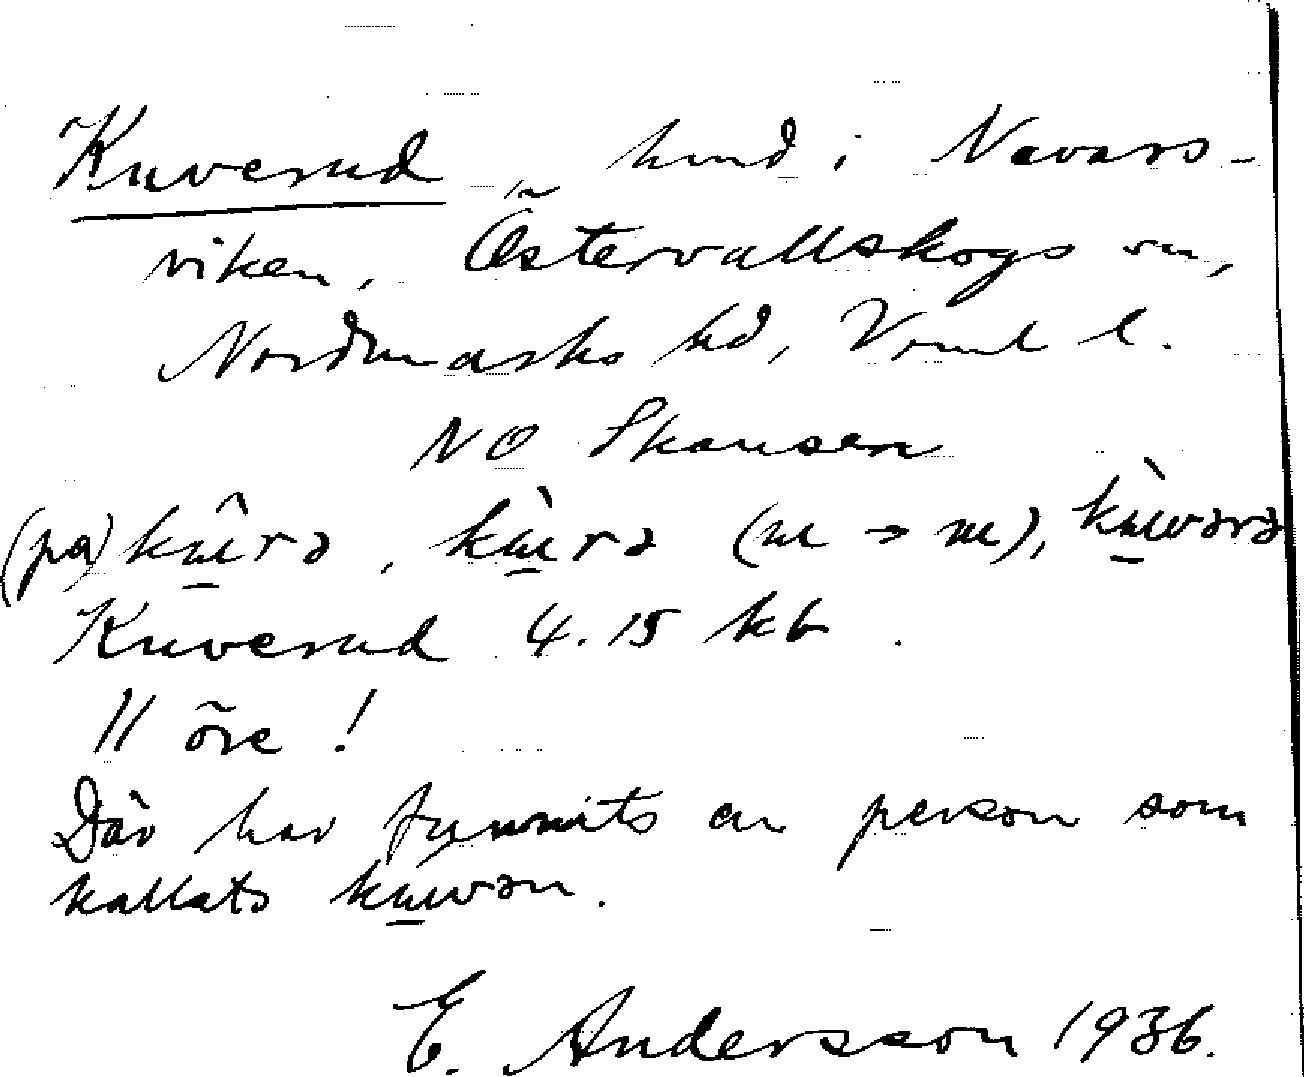 Kuverud, hmd i Navars-
viken, Östervallskogs sn,
Nordmarks hd, Vrml l.
NO Skansen
(på) kɯ̂rə, kɯ̀rə (ɯ → ɯ), kɯ̀wərə
Kuverud 4.15 kb.
11 öre!
Där har funnits en person som
kallats kɯwən.
E. Andersson 1936.